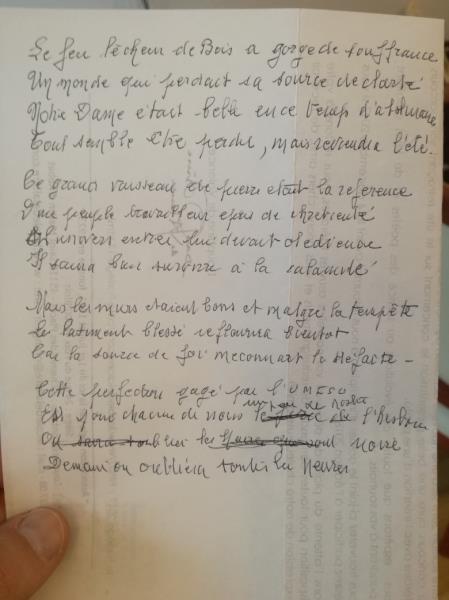 Le feu lêcheur de Bois a gorgé de souffrance
Un monde qui perdait sa source de clarté
Notre Dame était belle en ce temps d'
Tout semble être perdu, mais reviendra l'été.
Ce grand vaisseau de pierre était la reference
D'un peuple travailleur epris de chretienté
L'univers entier lui devait obedience
Il saura bien survivre à la calamité
Mais les murs etaient bons et malgré la tempête
Le batiment blessé refleurira bientot
Car la source de foi meconnait la défaite -
Cette perfection gagé par l'UNESCO
Est pour chacun de nous de l'histoire
Ou les noire
Demain on oubliera toutes les heures